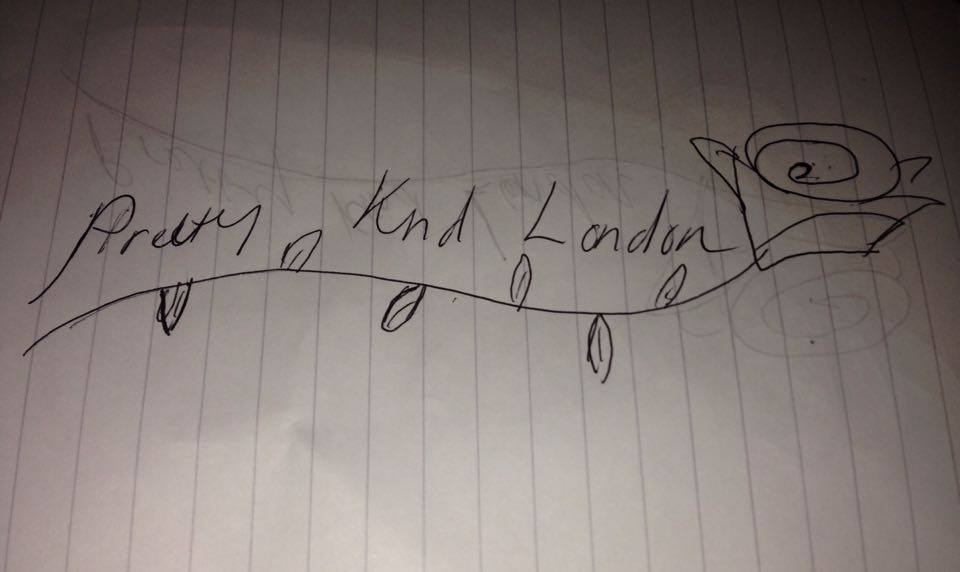 Pretty Knd London